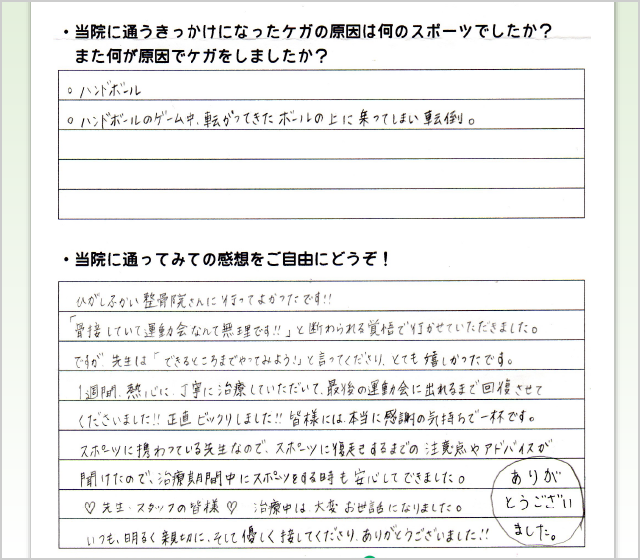 ・当院に通うきっかけになったケガの原因は何のスポーツでしたか？
また何が原因でケガをしましたか？
○ ハンドボール
○ ハンドボールのゲーム中、転がってきた ボールの上に乗ってしまい転倒。
・当院に通ってみての感想をご自由にどうぞ！
ひがしふかい整骨院さんに行ってよかったです!!
「骨接していて運動会なんて無理です!!」と断わられる覚悟で行かせていただきました。
ですが、先生は「できるところまでやってみよう!」と言ってくださり、とても嬉しかったです。
1週間、熱心に、丁寧に治療していただいて、最後の運動会に出れるまで回復させて
くださいました!! 正直ビックリしました!! 皆様には、本当に感謝の気持ちで一杯です。
スポーツに携わっている先生なので、スポーツに復帰するまでの注意点やアドバイスが
聞けたので、治療期間中にスポーツをする時も安心してできました。
♡ 先生・スタッフの皆様 ♡ 治療中は、大変お世話になりました。
いつも、明るく親切に、そして優しく接してくださり、ありがとうございました!!
ありが
とうござい
ました。